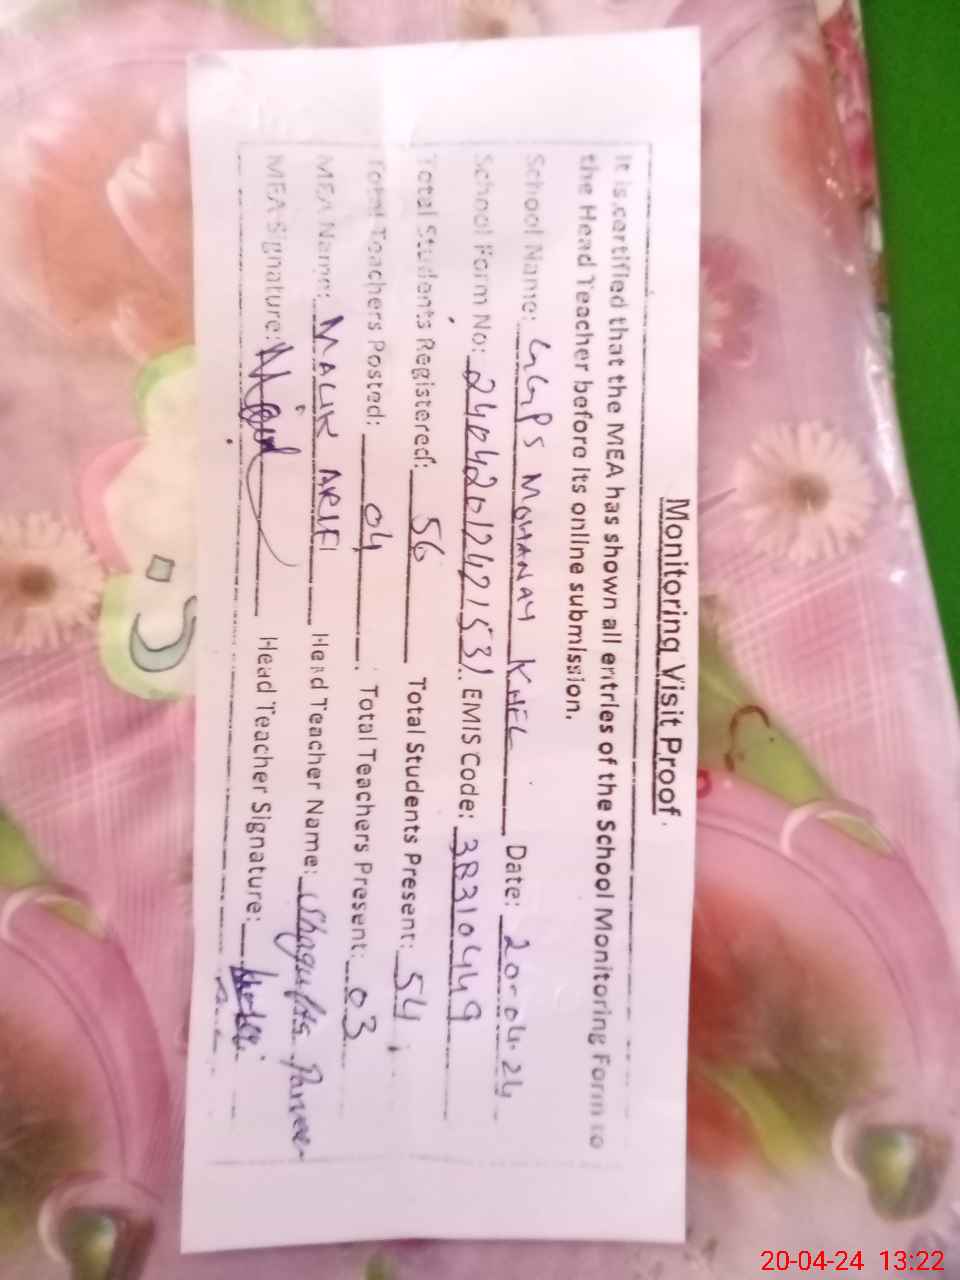 Monitoring Visit Proof
It is certified that the MEA has shown all entries of the School Monitoring Form to
the Head Teacher before its online submission.
School Name: GGPS MOHANAY KHEL Date: 20-04-24
School Form No: 24042012421531 EMIS Code: 38310449
Total Students Registered: 56 Total Students Present: 54
Total Teachers Posted: 04 Total Teachers Present: 03
MEA Name: MALIK ARIF Head Teacher Name: Shagufta Parveen
MEA Signature: Head Teacher Signature:
20-04-24 13:22